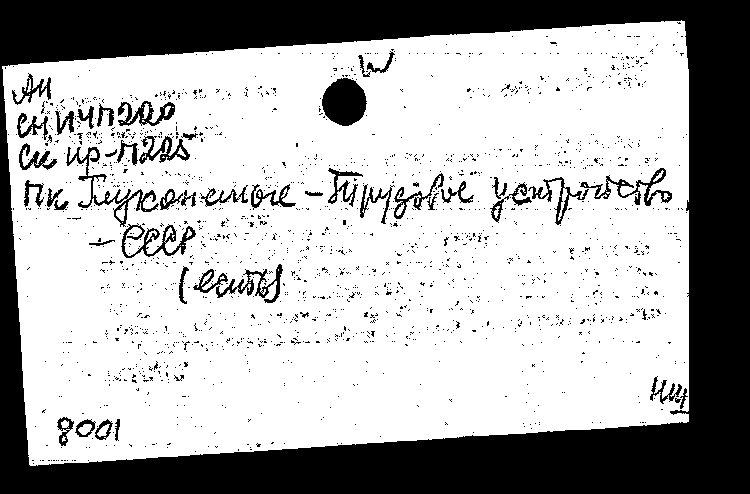 Ш
АИ
СН ИЧП220
СК ИР-П225
ПК Глухонемые - Трудовое устройство
- СССР
(есть)
НШ
8001